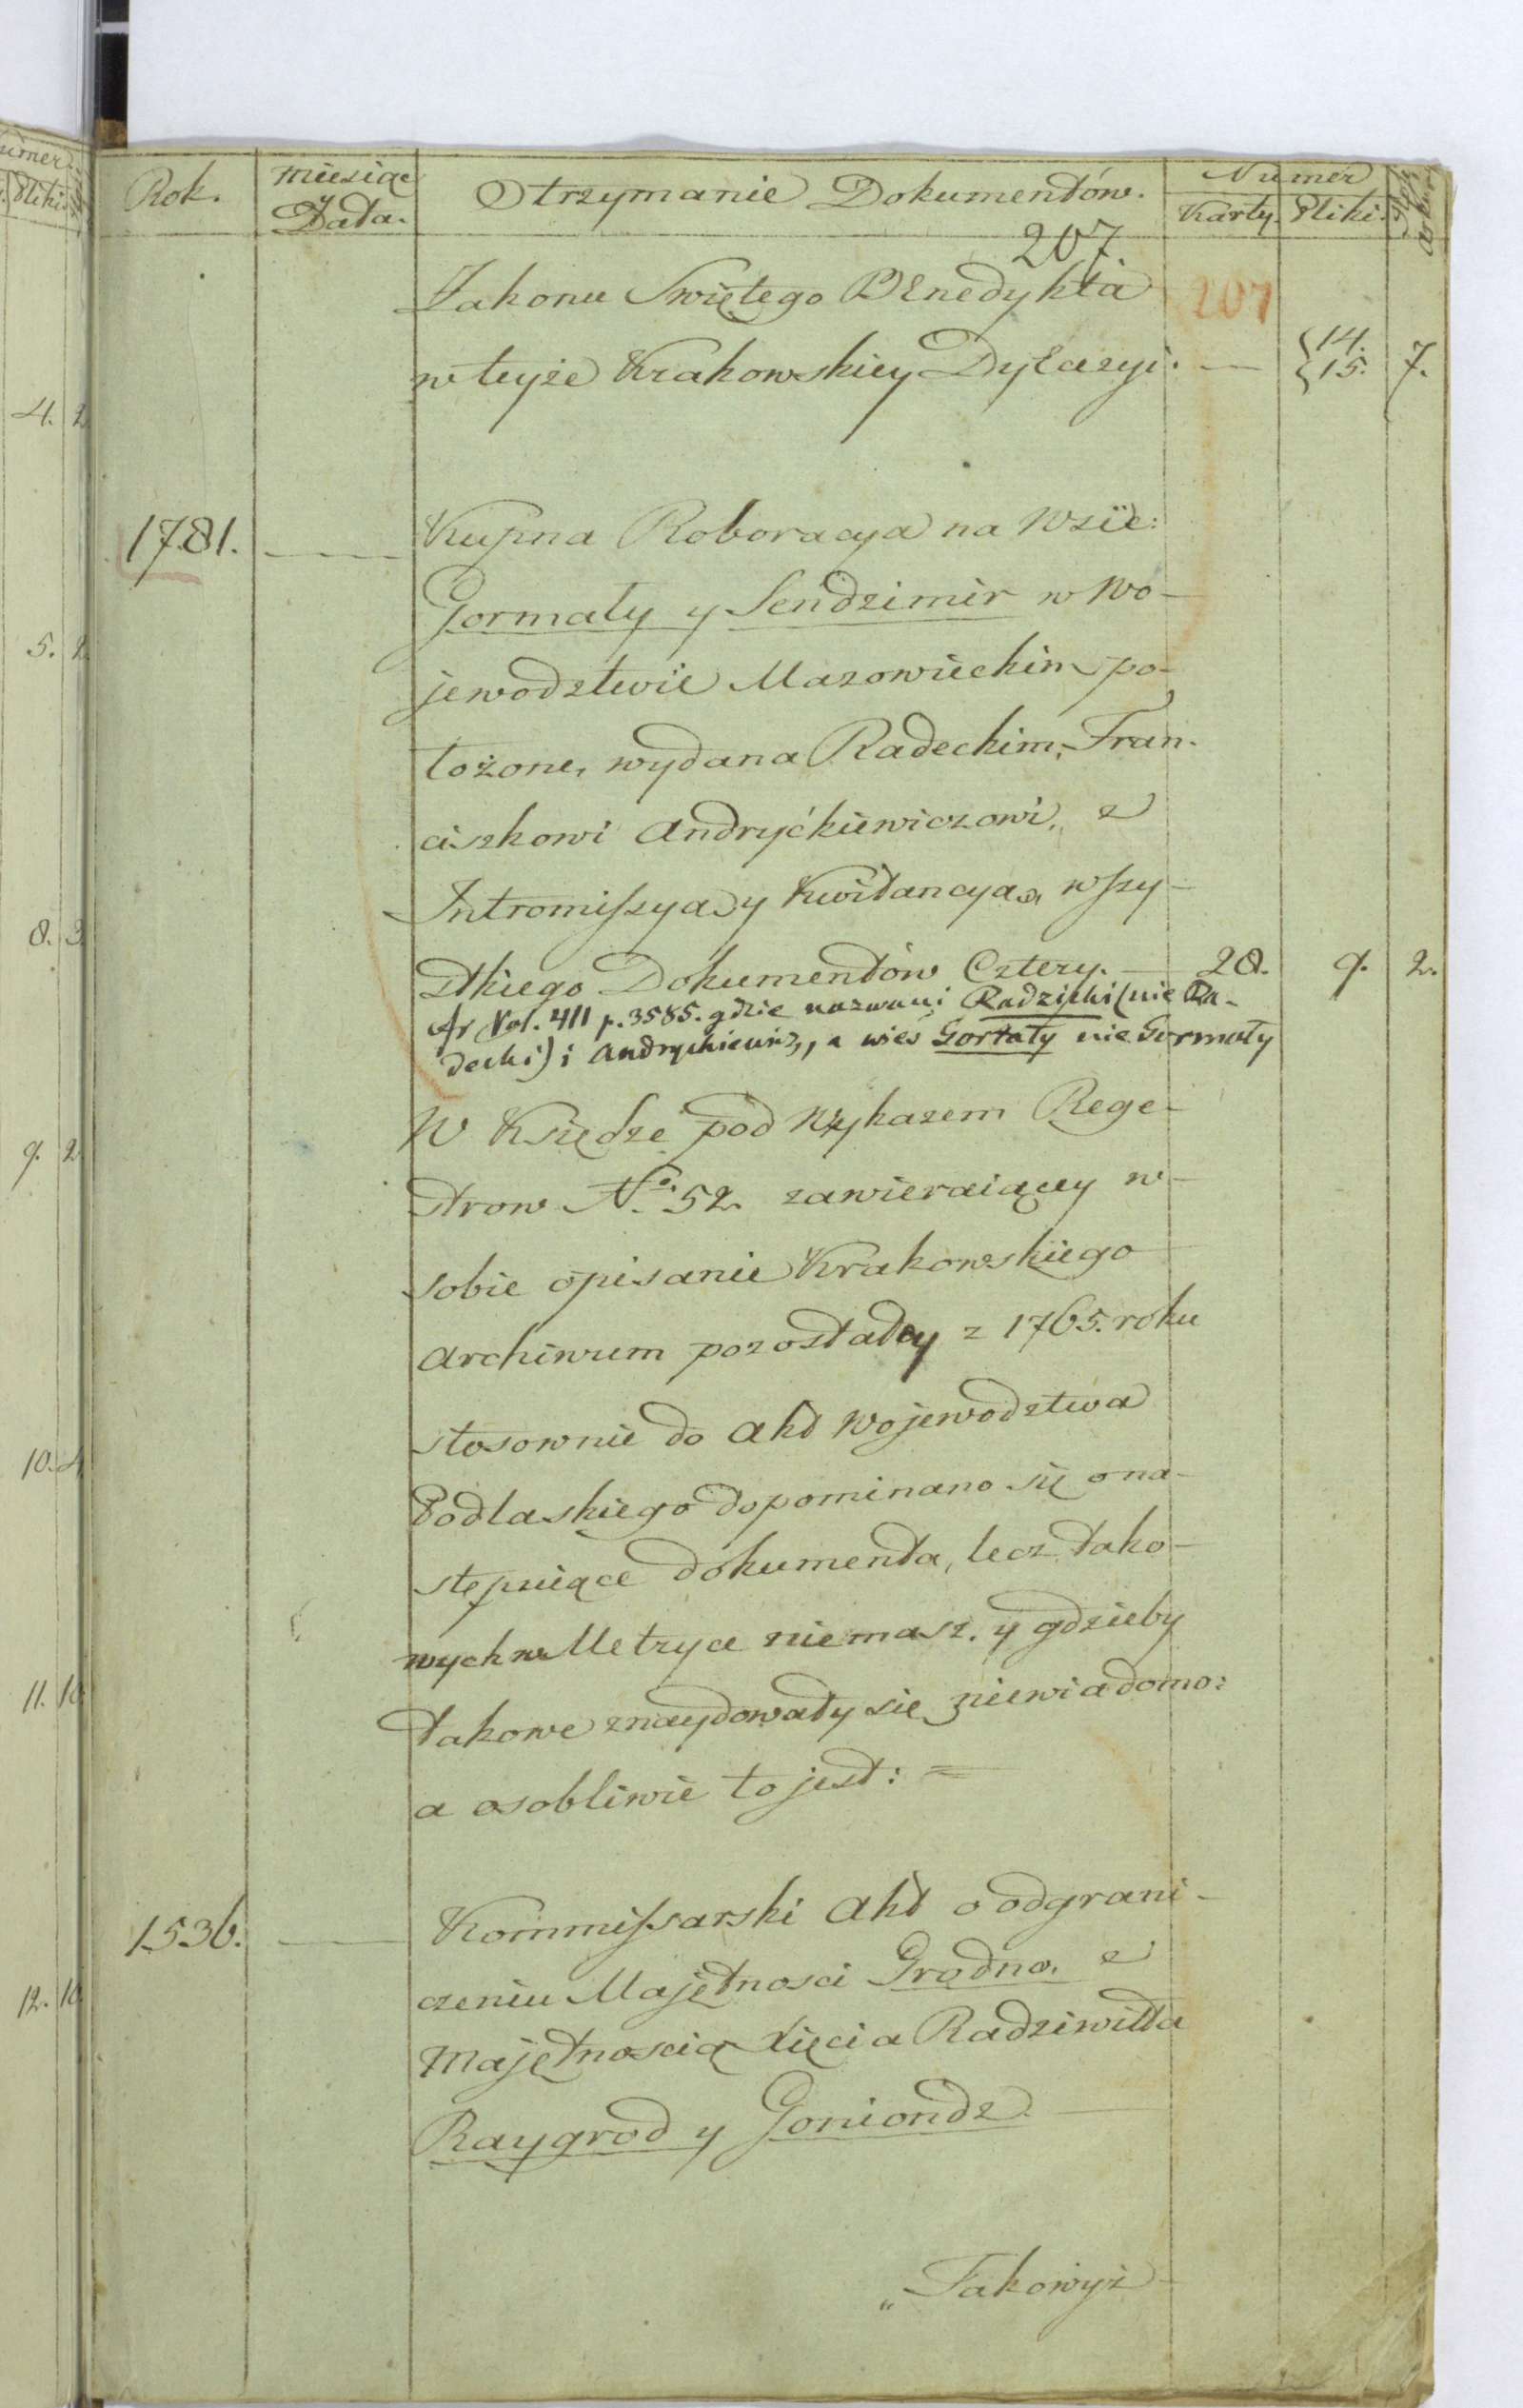 Rok.
Miesiąc
y
Data.
Otrzymanie Dokumentów.
Numer
Karty. Pliki.
207
Zakonu Swiętego BEnedykta
207
w teyże Krakowskiey DyEcezyi. —
14.
15.
7.
1781. — Kupna Roboracya na Wsie:
Gormały y Sendzimir w Wo-
jewodztwie Mazowieckim po-
łożone, wydana Radeckim, Fran-
ciszkowi Andryćkiewiczowi, z
Intromissyą y Kwitancyą, wszy-
stkiego Dokumentów Cztery. — 28. 9. 2.
Cfr Vol. 411 p. 3585. gdzie nazwani Radzicki (nie Ra-
decki) i Andrychiewicz, a wieś Gortaty nie Gormoły
W Księdze pod Wykazem Rege-
strow No. 52. zawieraiącey w
sobie opisanie Krakowskiego
Archiwum pozostałey z 1765. roku
stosownie do Akt Wojewodztwa
Podlaskiego dopominano się o na-
stępuiące dokumenta, lecz tako-
wych w Metryce niemasz. y gdzieby
takowe znaydowały się niewiadomo:
a osobliwie to jest: =
1536. — Kommissarski Akt o odgrani-
czeniu Majętnosci Grodno, z
Majętnoscią Xięcia Radziwiłła
Raygrod y Goniondz. —
„Takowyż
4. 2
5. 2.
8. 3
9. 2
10. 4
11. 10
12. 10